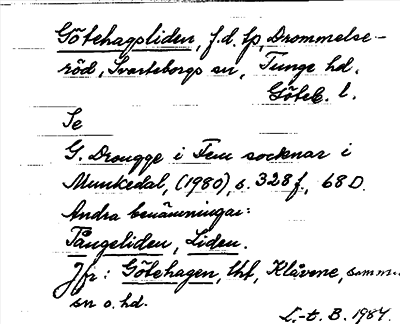 Götehagsliden, f.d. lp, Drommelse-
röd, Svarteborgs sn, Tunge hd,
Göteb. l.
Se
G. Drougge i Fem socknar i
Munkedal, (1980), s. 328 f., 68 D.
Andra benämningar:
Tångeliden, Liden.
Jfr: Götehagen, tht, Klåvene, samma
sn o. hd.
L-t. B. 1984.